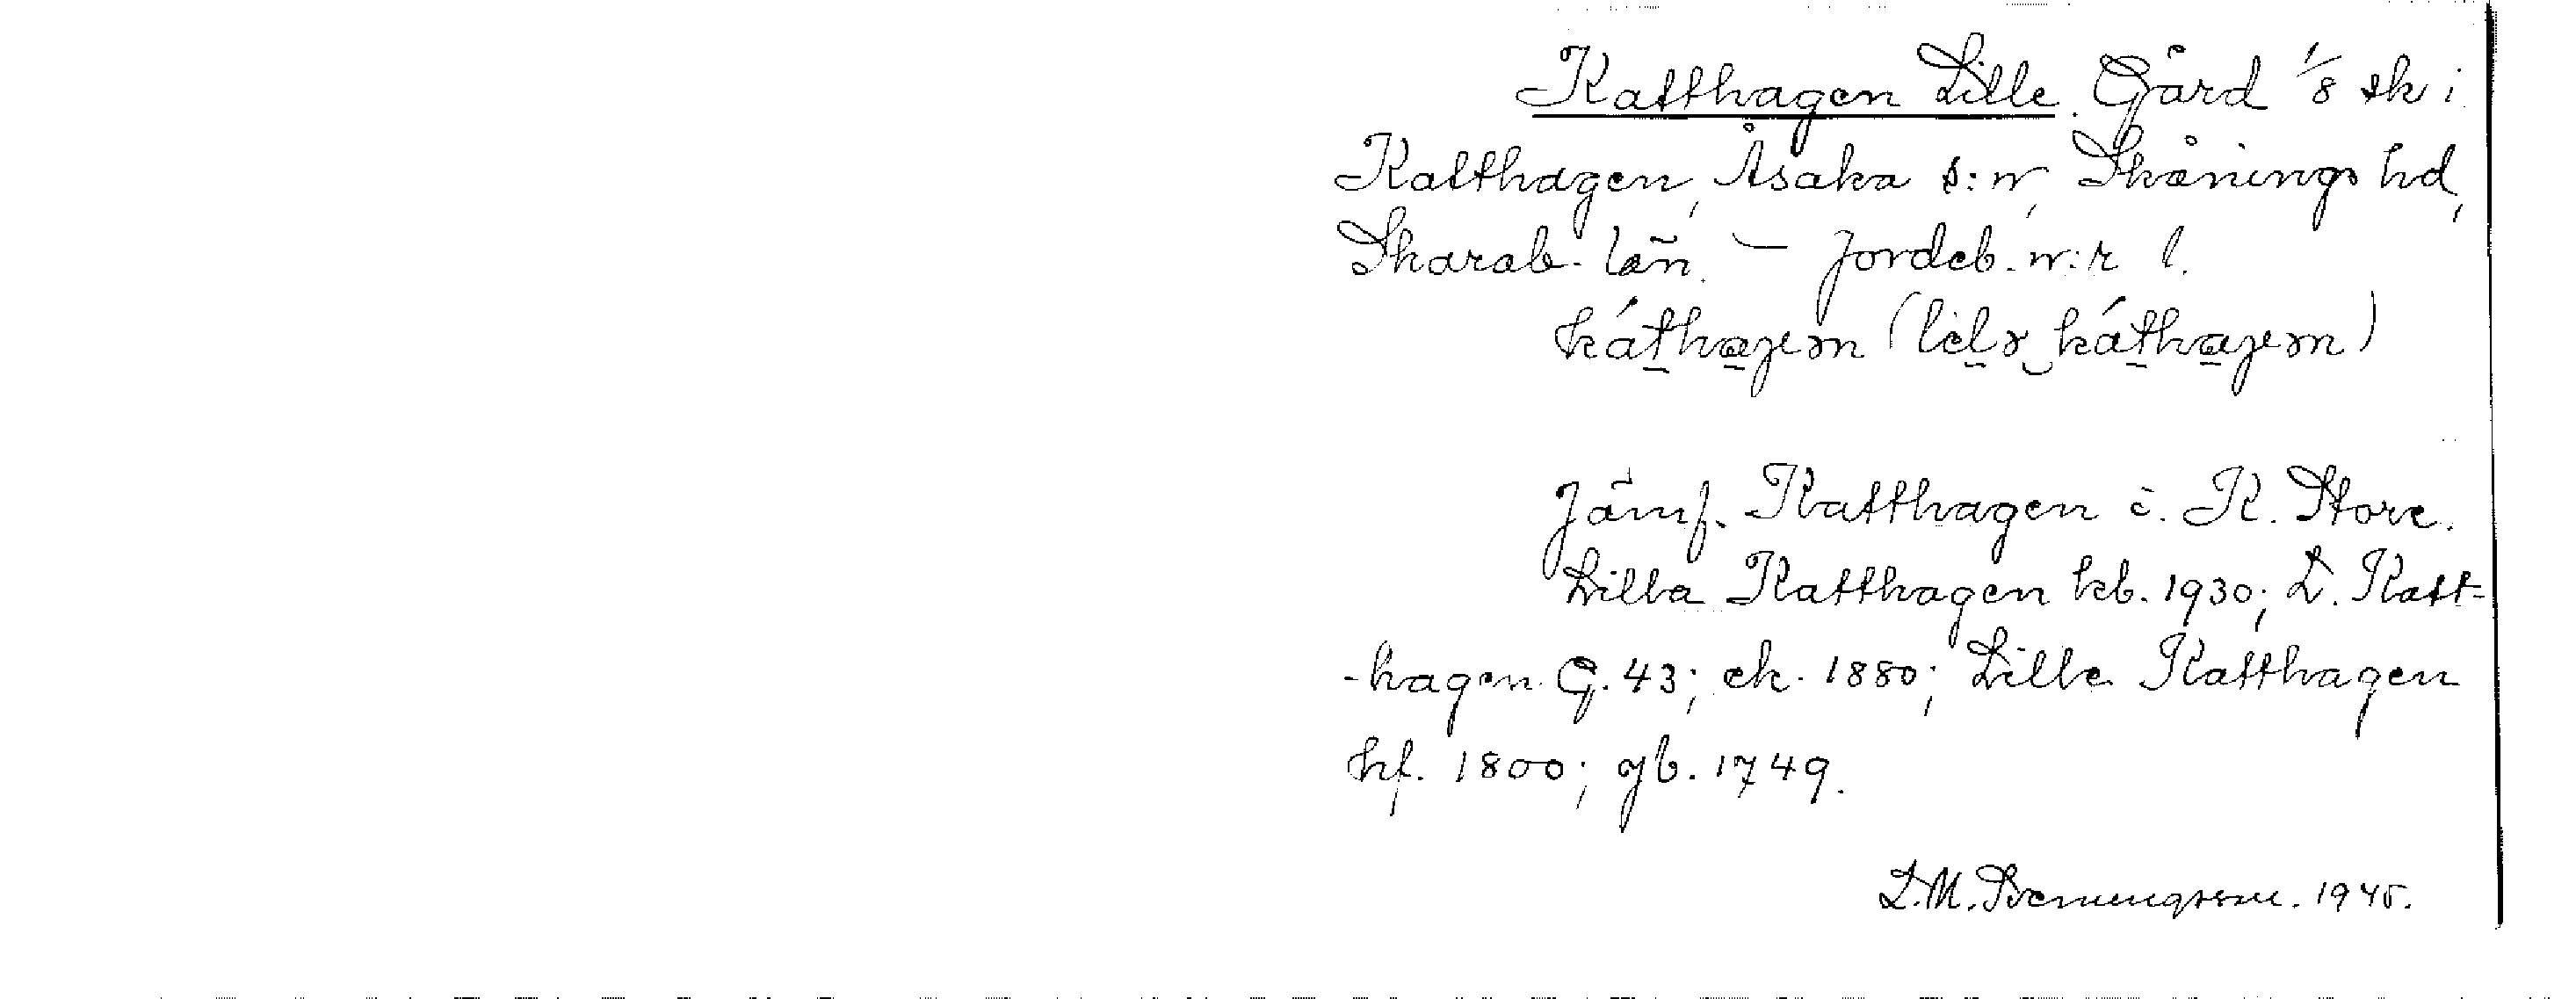 Katthagen Lille. Gård 1/8 sk i
Katthagen, Åsaka s:n, Skånings hd,
Skarab. län. – Jordeb. n:r 1.
káthaɡen (lilə káthaɡen)
Jämf. Katthagen o. K. Store.
Lilla Katthagen kb. 1930; L. Katt-
-hagen G. 43; ek. 1880; Lille Katthagen
hf. 1800; gb. 1749.
L.M. 1945.